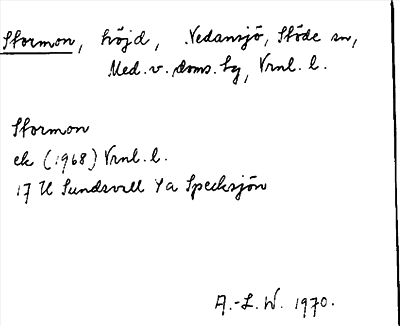 Stormon, höjd, Nedansjö, Stöde sn,
Med. v. doms. tg, Vrnl. l.
Stormon
ek (1968) Vrnl. l.
17 H Sundsvall 4 a Specksjön
A.-L. W. 1970.